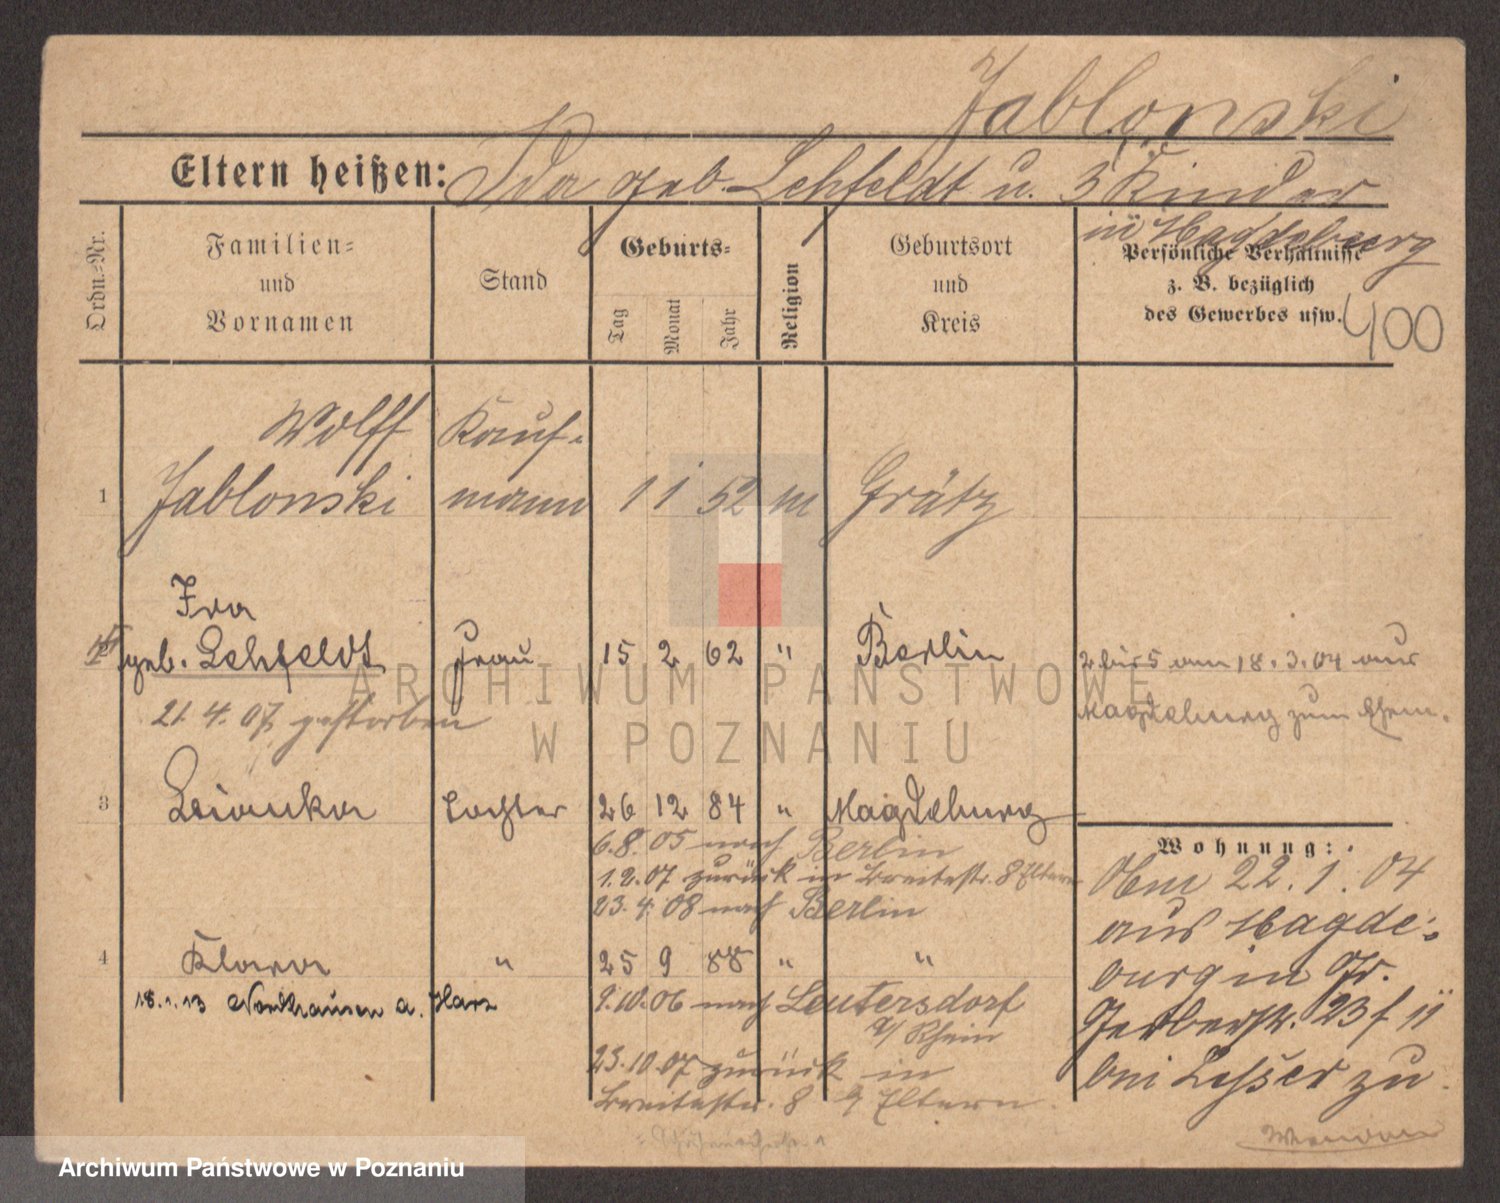 Jablonski
Eltern heißen: Ida geb. Lehfeldt u. 3 Kinder
in Magdeburg
Ordn.-Nr.
Familien-
und
Vornamen
Stand
Geburts-
Tag
Monat
Jahr
Religion
Geburtsort
und
Kreis
Persönliche Verhältnisse
z. B. bezüglich
des Gewerbes usw.
400
Wolff Kauf-
1 Jablonski mann 1 1 52 m Grätz
Ida
geb. Lehfeldt Frau 15 2 62 " Berlin
2 bis 5 am 18.3.04 aus
Magdeburg zum Ehem.
21.4.07 gestorben
3 Bianka Tochter 26 12 84 " Magdeburg
6.8.05 nach Berlin
1.2.07 zurück in Breitestr. 8 Eltern
23.4.08 nach Berlin
4 Klara " 25 9 88 " "
18.1.13 Nordhausen a. Harz
9.10.06 nach Leutersdorf
a/ Rhein
23.10.07 zurück in
Breitestr. 8 b/ Eltern.
Wohnung:
Am 22.1.04
aus Magde-
burg in Gr.
Gerberstr. 23 f II
bei Lesser zu
ARCHIWUM PAŃSTWOWE
W POZNANIU
Archiwum Państwowe w Poznaniu